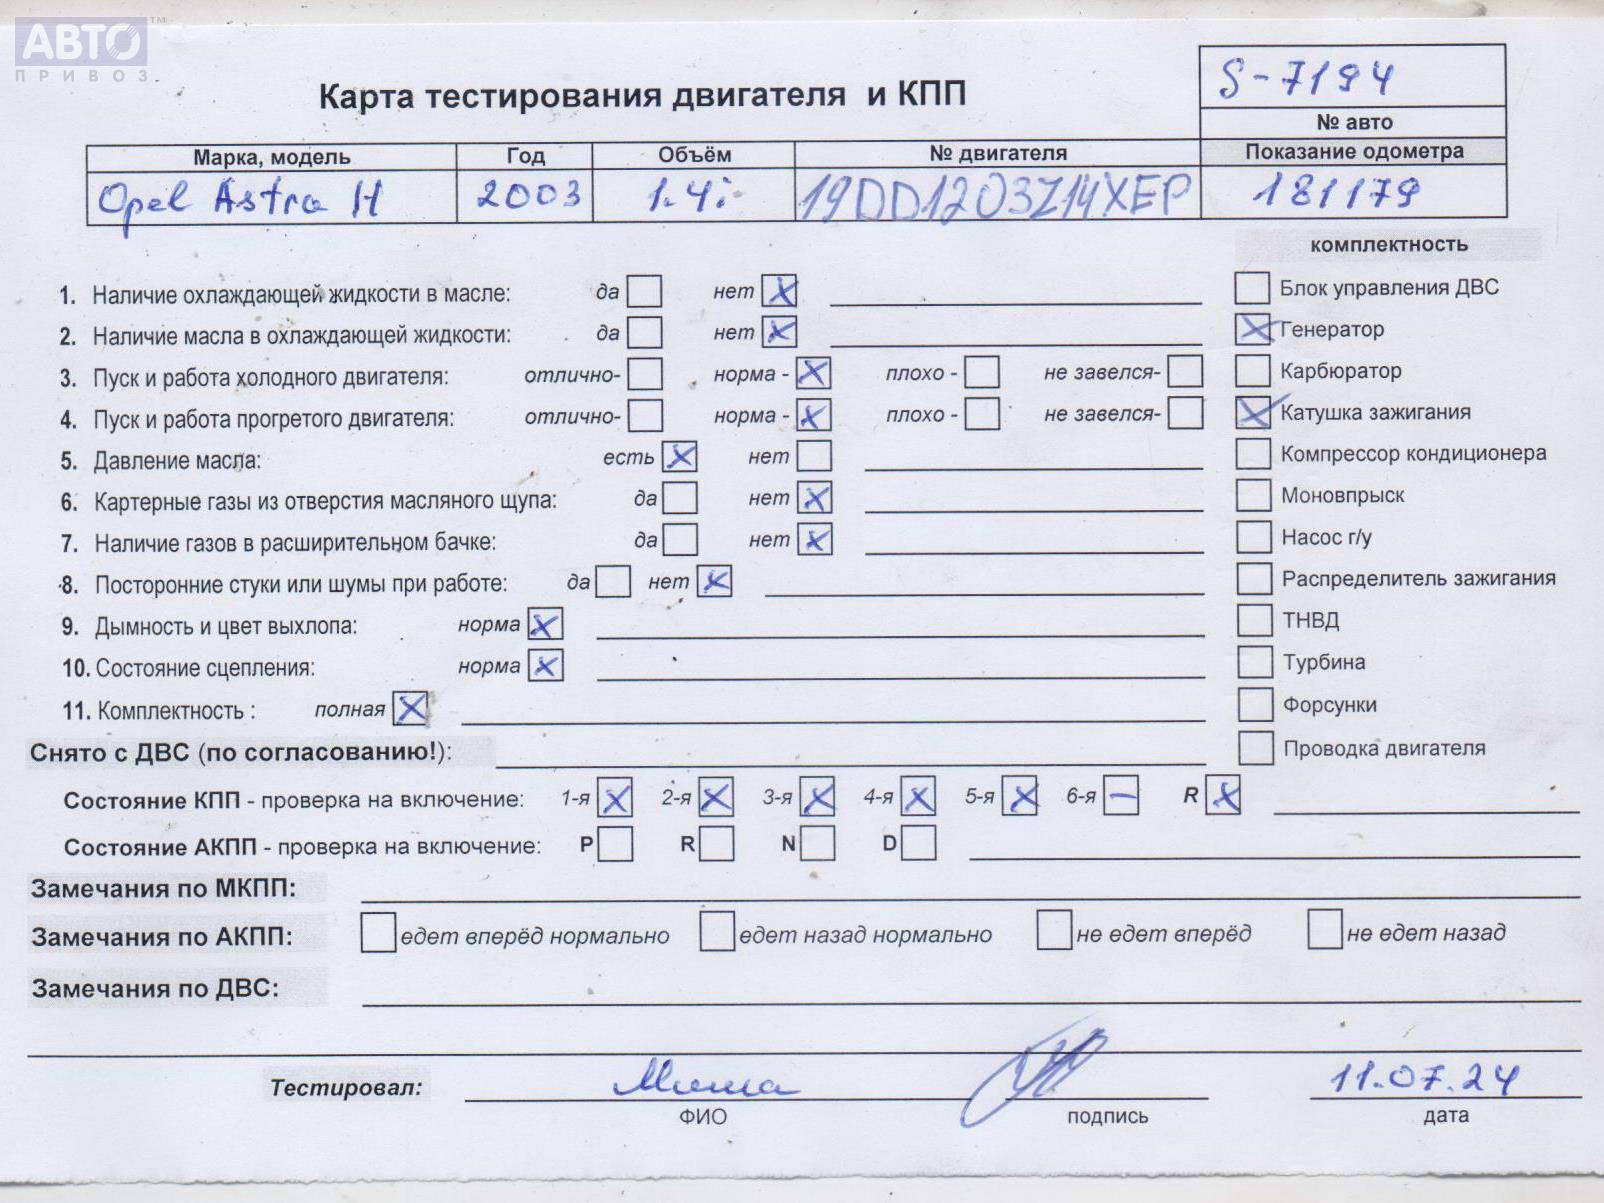 АВТО™
ПРИВОЗ
Карта тестирования двигателя и КПП
S-7194
№ авто
Марка, модель Год Объём № двигателя Показание одометра
Opel Astra H 2003 1.4i 19DD1203Z14XEP 181179
комплектность
1. Наличие охлаждающей жидкости в масле: да нет X
Блок управления ДВС
2. Наличие масла в охлаждающей жидкости: да нет X
X Генератор
3. Пуск и работа холодного двигателя: отлично- норма - X плохо - не завелся-
Карбюратор
4. Пуск и работа прогретого двигателя: отлично- норма - X плохо - не завелся-
X Катушка зажигания
5. Давление масла: есть X нет
Компрессор кондиционера
6. Картерные газы из отверстия масляного щупа: да нет X
Моновпрыск
7. Наличие газов в расширительном бачке: да нет X
Насос г/у
8. Посторонние стуки или шумы при работе: да нет X
Распределитель зажигания
9. Дымность и цвет выхлопа: норма X
ТНВД
10. Состояние сцепления: норма X
Турбина
11. Комплектность : полная X
Форсунки
Снято с ДВС (по согласованию!):
Проводка двигателя
Состояние КПП - проверка на включение: 1-я X 2-я X 3-я X 4-я X 5-я X 6-я – R X
Состояние АКПП - проверка на включение: P R N D
Замечания по МКПП:
Замечания по АКПП: едет вперёд нормально едет назад нормально не едет вперёд не едет назад
Замечания по ДВС:
Тестировал: Миша 11.07.24
ФИО подпись дата